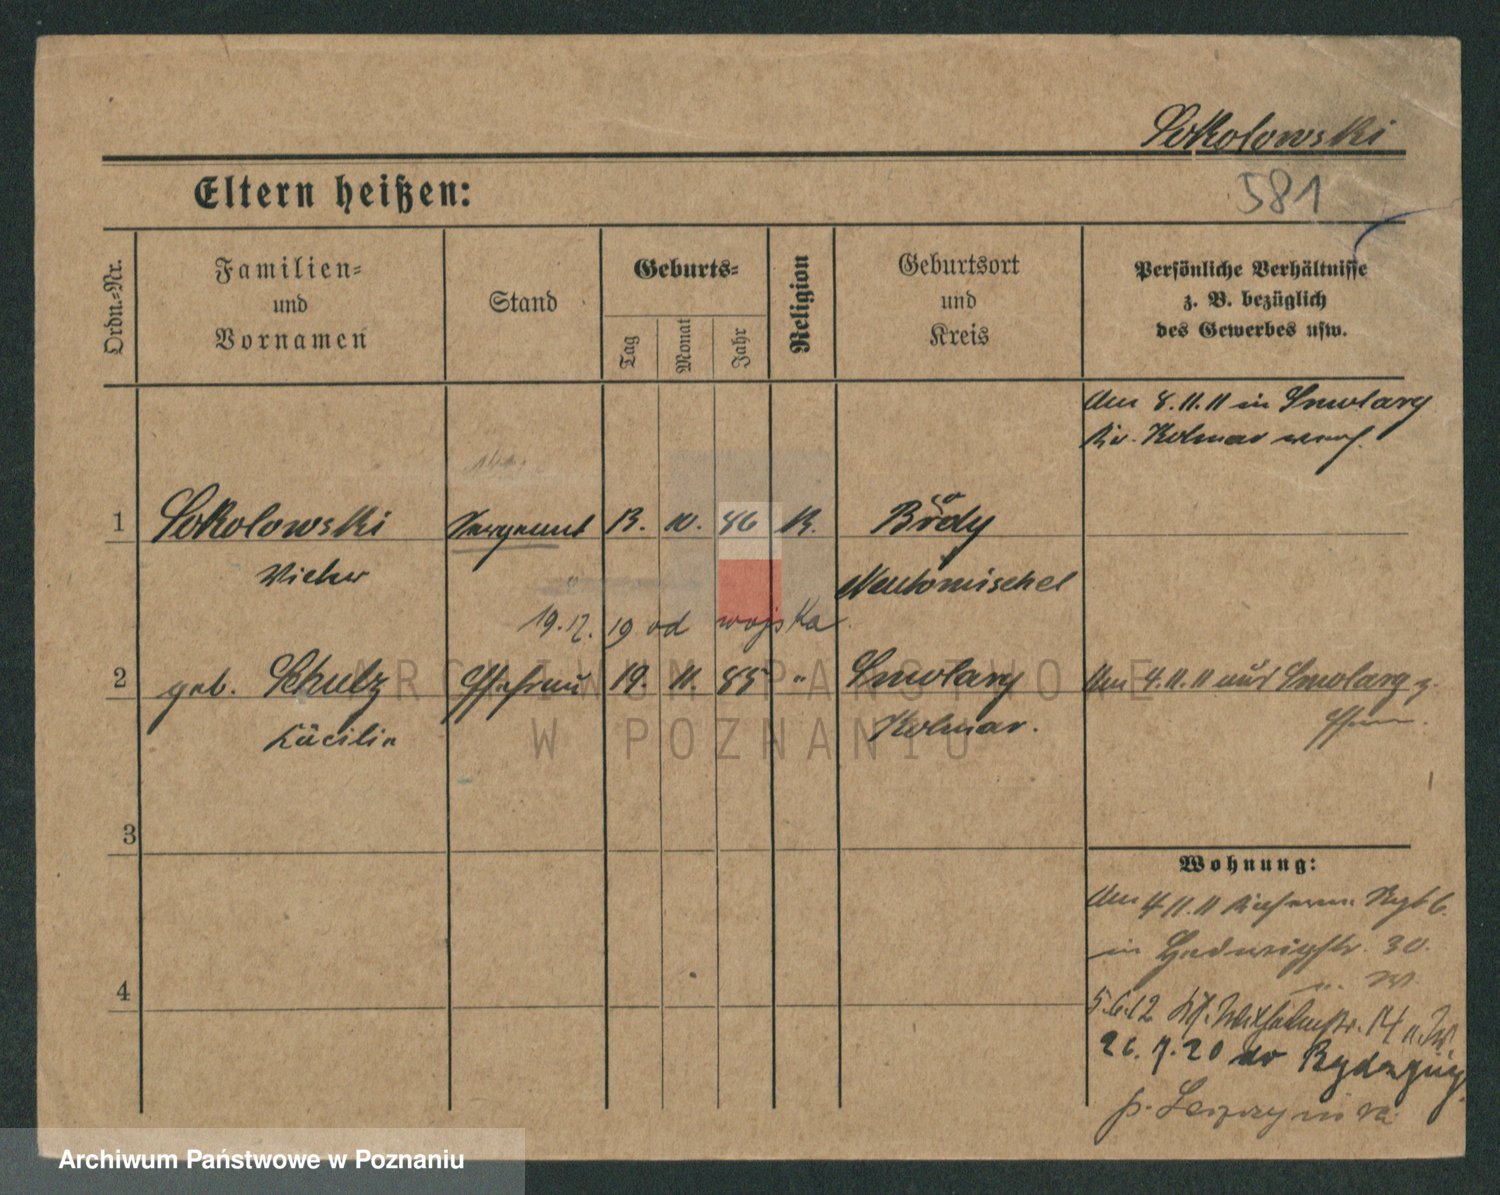 Sokolowski
Eltern heißen:
581
Ordn.-Nr.
Familien-
und
Vornamen
Stand
Geburts-
Tag
Monat
Jahr
Religion
Geburtsort
und
Kreis
Persönliche Verhältnisse
z. B. bezüglich
des Gewerbes usw.
Am 8.11.11 in Smolary
Kr. Kolmar verh.
1
Sokolowski
Sergeant
13. 10. 86
K.
Brody
Neutomischel
19.12. 19 od wojska.
2
geb. Schulz
Ehefrau
19. 11. 85
"
Smolary
Kolmar.
Am 4.11.11 aus Smolary z.
3
4
Wohnung:
Am 4.11.11
in Hedwigstr. 30.
5.6.12
Wilhelmstr. 14
26.7.20 do
ARCHIWUM PAŃSTWOWE
W POZNANIU
Archiwum Państwowe w Poznaniu